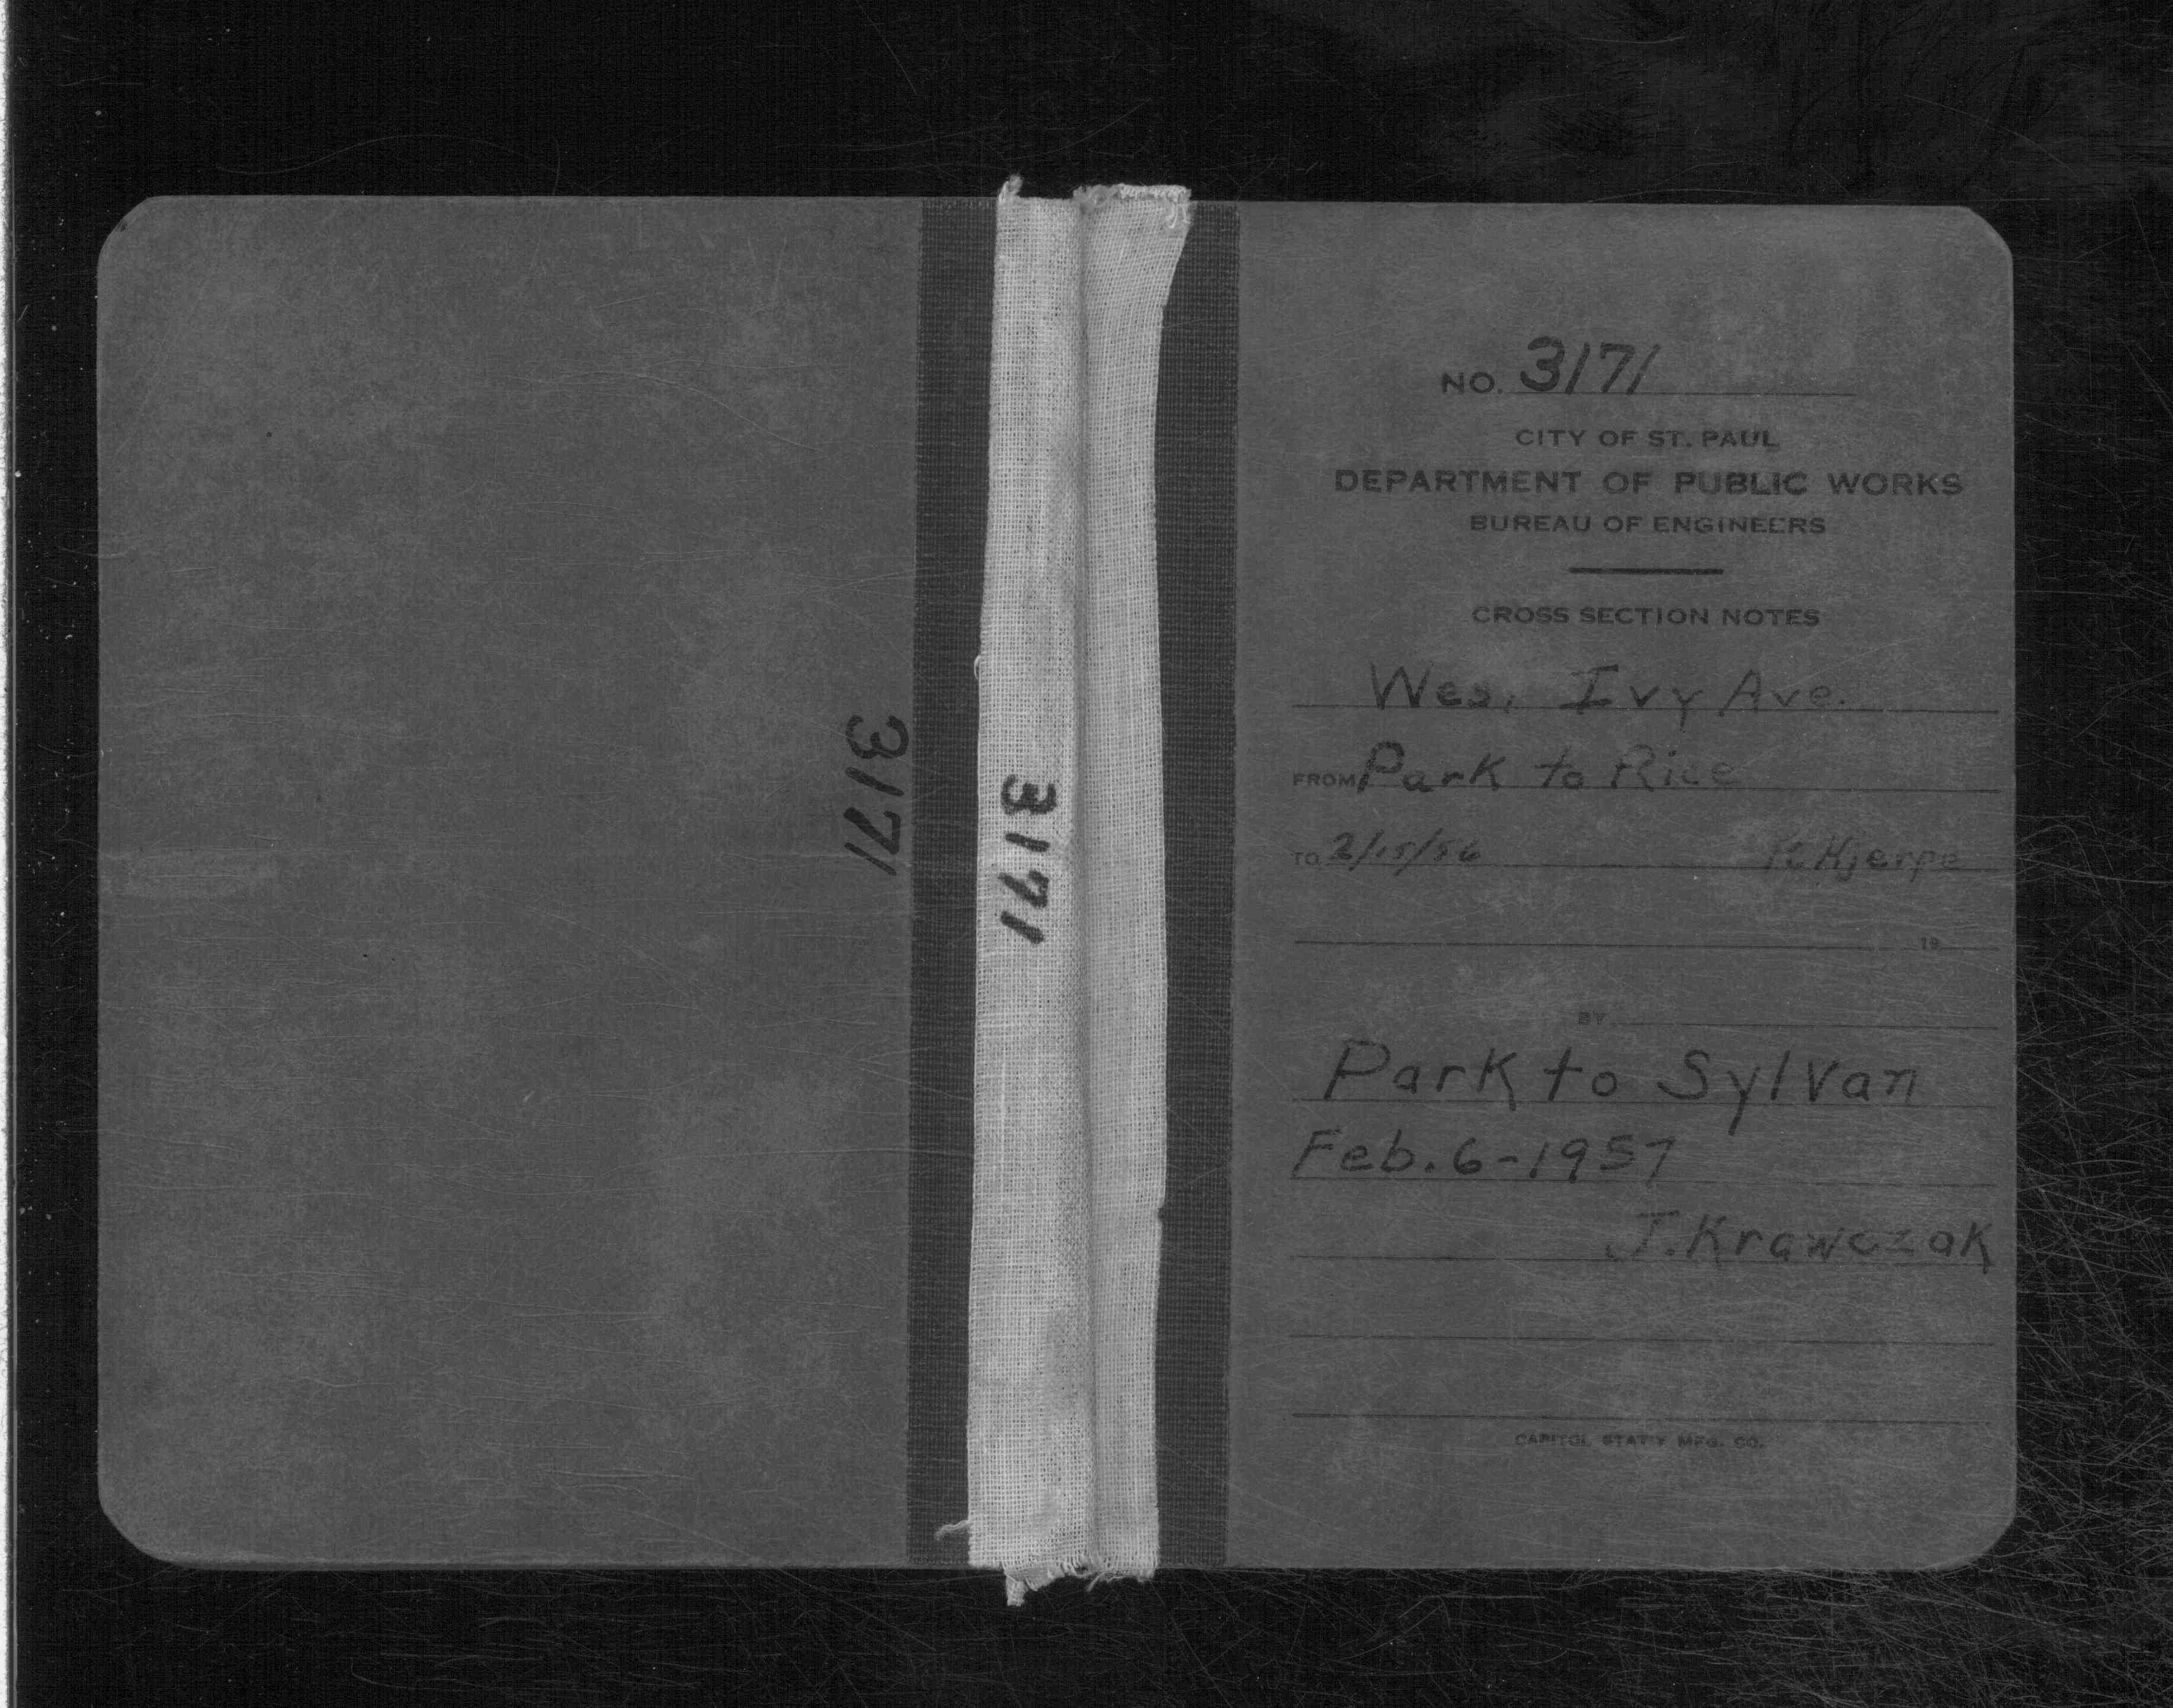 3171
3171
NO. 3171
CITY OF ST. PAUL
DEPARTMENT OF PUBLIC WORKS
BUREAU OF ENGINEERS
CROSS SECTION NOTES
Wes, Ivy Ave.
FROM Park to Rice
TO 2/15/56 Kjerpe
19
BY
Park to Sylvan
Feb. 6-1957
J. Krawczak
CAPITOL STAT'Y MFG. CO.